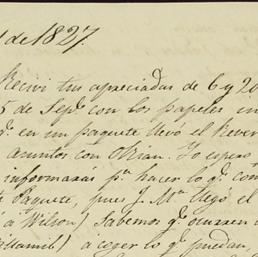 de 1827.
Recivi tus apreciadas de 6 y 20
5 de Sepe. con los papeles in
qe. en un paquete llevó el Rever
asuntos con Brian. Yo espero
informaras pa. hacer lo qe. con
Paquete, pues J. Ma. llegó el
á Wilson) Sabemos qe.
á coger lo qe. puedan,